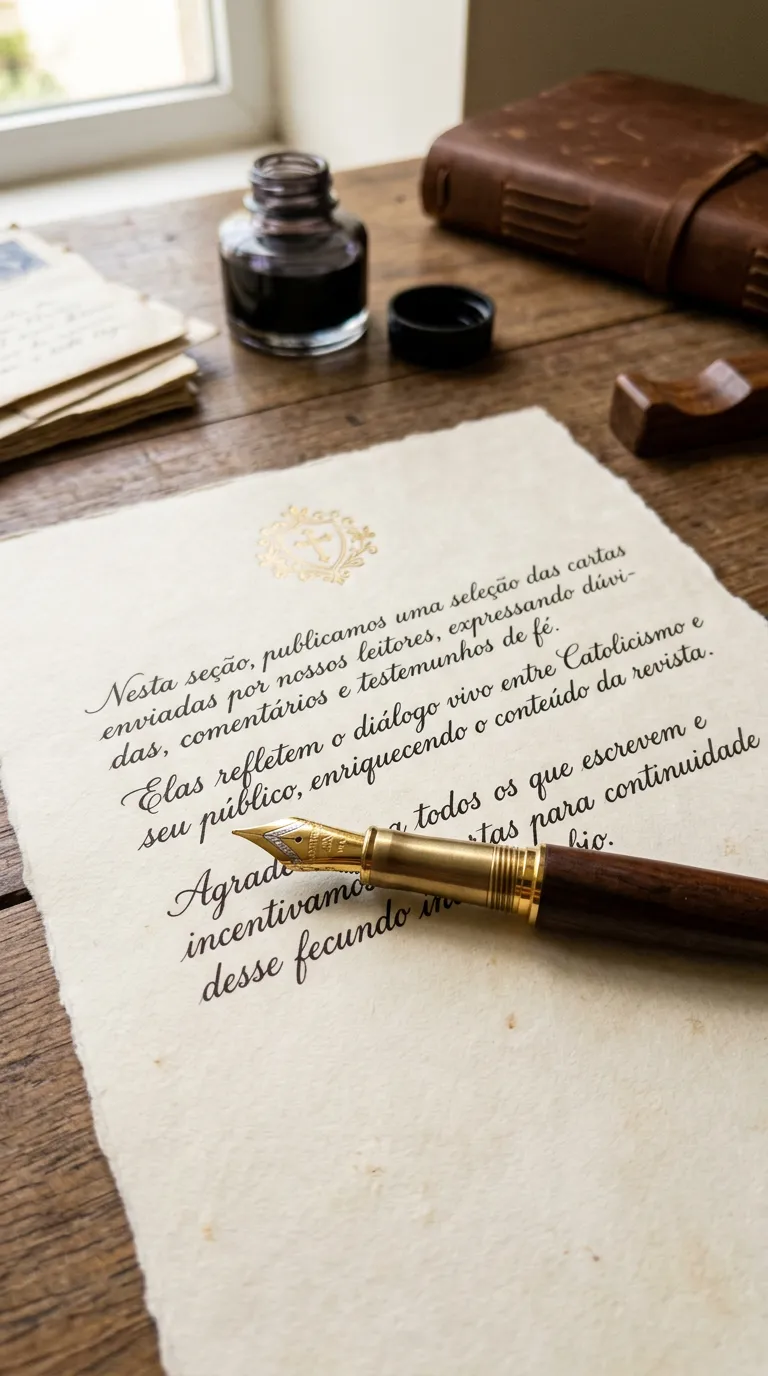 Nesta seção, publicamos uma seleção das cartas
enviadas por nossos leitores, expressando dúvi-
das, comentários e testemunhos de fé.
Elas refletem o diálogo vivo entre Catolicismo e
seu público, enriquecendo o conteúdo da revista.
a todos os que escrevem e
incentivamos para continuidade
desse fecundo